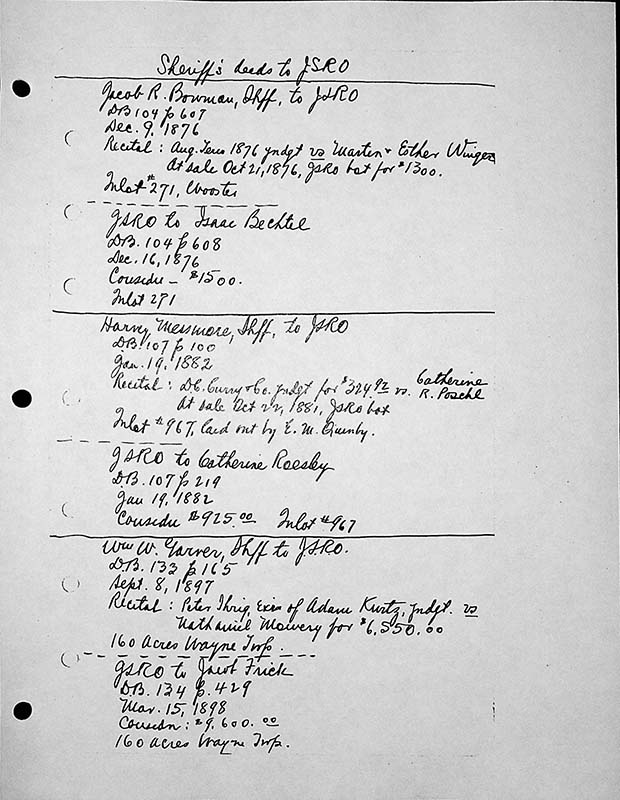 Sheriff's deeds to JSRO
Jacob R. Bowman, Shff, to JSRO
DB 104 p 607
Dec. 9, 1876
Recital : Aug. Term 1876 jndgt vs Martin + Esther Winger
At sale Oct 21, 1876, JSRO bot for $1300.
Inlot #271, Wooster
JSRO to Isaac Bechtel
DB. 104 p 608
Dec. 16, 1876
Considn - $1500.
Inlot 271
Harvey Messmore, Shff, to JSRO
DB. 107 p 100
Jan. 19, 1882
Recital : D.C. Curry + Co. jndgt for $324.92 vs. Catherine R. Poschl
At sale Oct 22, 1881, JSRO bot
Inlot #967, laid out by E. M. Quinby.
JSRO to Catherine Roesby
D.B. 107 p 219
Jan 19, 1882
Considn $925.00 Inlot #967
Wm W. Garver, Shff to JSRO.
D.B. 133 p 165
Sept. 8, 1897
Recital : Peter Ihrig, Exrn of Adam Kurtz, jndgt. vs
Nathaniel Mowery for $6,550.00
160 Acres Wayne Twp.
JSRO to Jacob Frick
D.B. 134 p. 429
Mar. 15, 1898
Considn : $9,600.00
160 acres Wayne Twp.